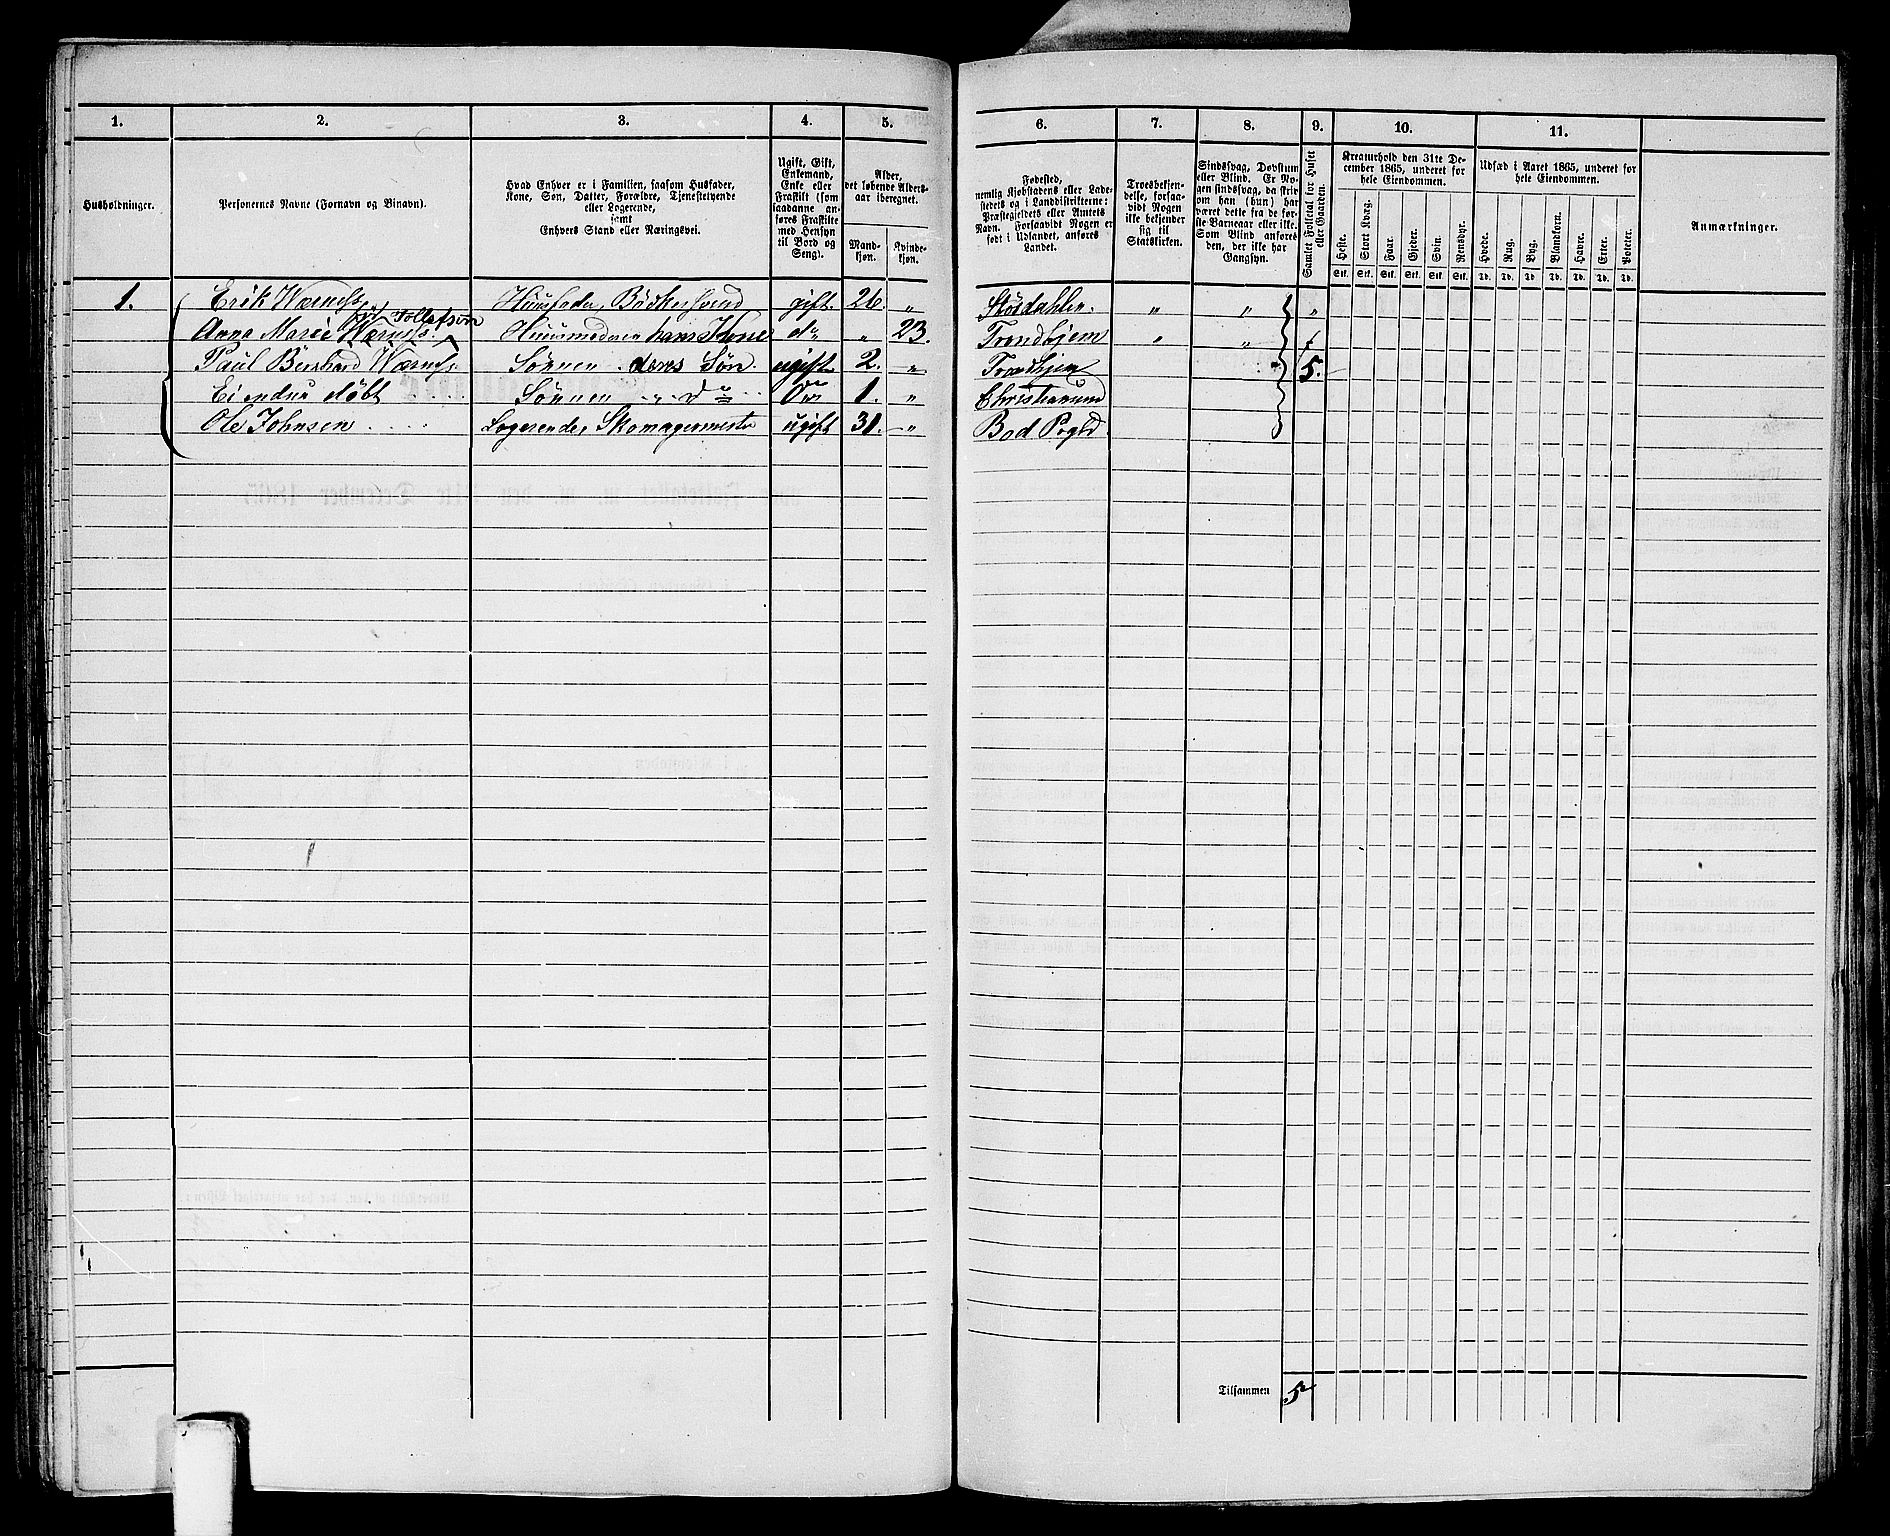 1. 2. 3. 4. 5. 6. 7. 8. 9. 10. 11.
Husholdninger.
Personernes Navne (Fornavn og Binavn).
Hvad Enhver er i Familien, saasom Husfader,
Kone, Søn, Datter, Forældre, Tjenestetyende
eller Logerende,
samt
Enhvers Stand eller Næringsvei.
Ugift, Gift,
Enkemand,
Enke eller
Fraskilt (som
saadanne an-
føres Fraskilte
med Hensyn
til Bord og
Seng).
Alder,
det løbende Alders-
aar iberegnet.
Mand-
kjøn.
Kvinde-
kjøn.
Fødested,
nemlig Kjøbstadens eller Lade-
stedets og i Landdistrikterne:
Præstegjeldets eller Amtets
Navn. Forsaavidt Nogen er
født i Udlandet, anføres
Landet.
Troesbekjen-
delse, forsaa-
vidt Nogen
ikke bekjender
sig til
Statskirken.
Sindssvag, Døvstum
eller Blind. Er No-
gen sindssvag, da skriv
om han (hun) har
været dette fra de før-
ste Barneaar eller ikke.
Som Blind anføres
den, der ikke har
Gangsyn.
Samlet Folketal for Huset
eller Gaarden.
Kreaturhold den 31te De-
cember 1865, underet for
hele Eiendommen.
Heste. Stort Kvæg. Faar. Gjeder. Svin. Rensdyr.
Stk. Stk. Stk. Stk. Stk. Stk.
Udsæd i Aaret 1865, underet for
hele Eiendommen.
Hvede. Rug. Byg. Blandkorn. Havre. Erter. Poteter.
Td. Td. Td. Td. Td. Td. Td.
Anmærkninger.
1. Erik Wærnes Huusfader, Bäckersvend gift. 26. „ Stördahlen. „ „ „
Tollefsøn
Anna Marie Wærnes. Huusmoder hans Kone d° „ 23. Trondhjem „ „
Paul Bernhard Wærnes. Sønnen deres Søn. ugift 2. „ Trondhjem 5.
Ei endnu döbt Sønnen d° 1. „ Christiansund
Ole Johnsen Logerende, Skomagermester ugift 31. „ Bod Prgld.
Tilsammen 5